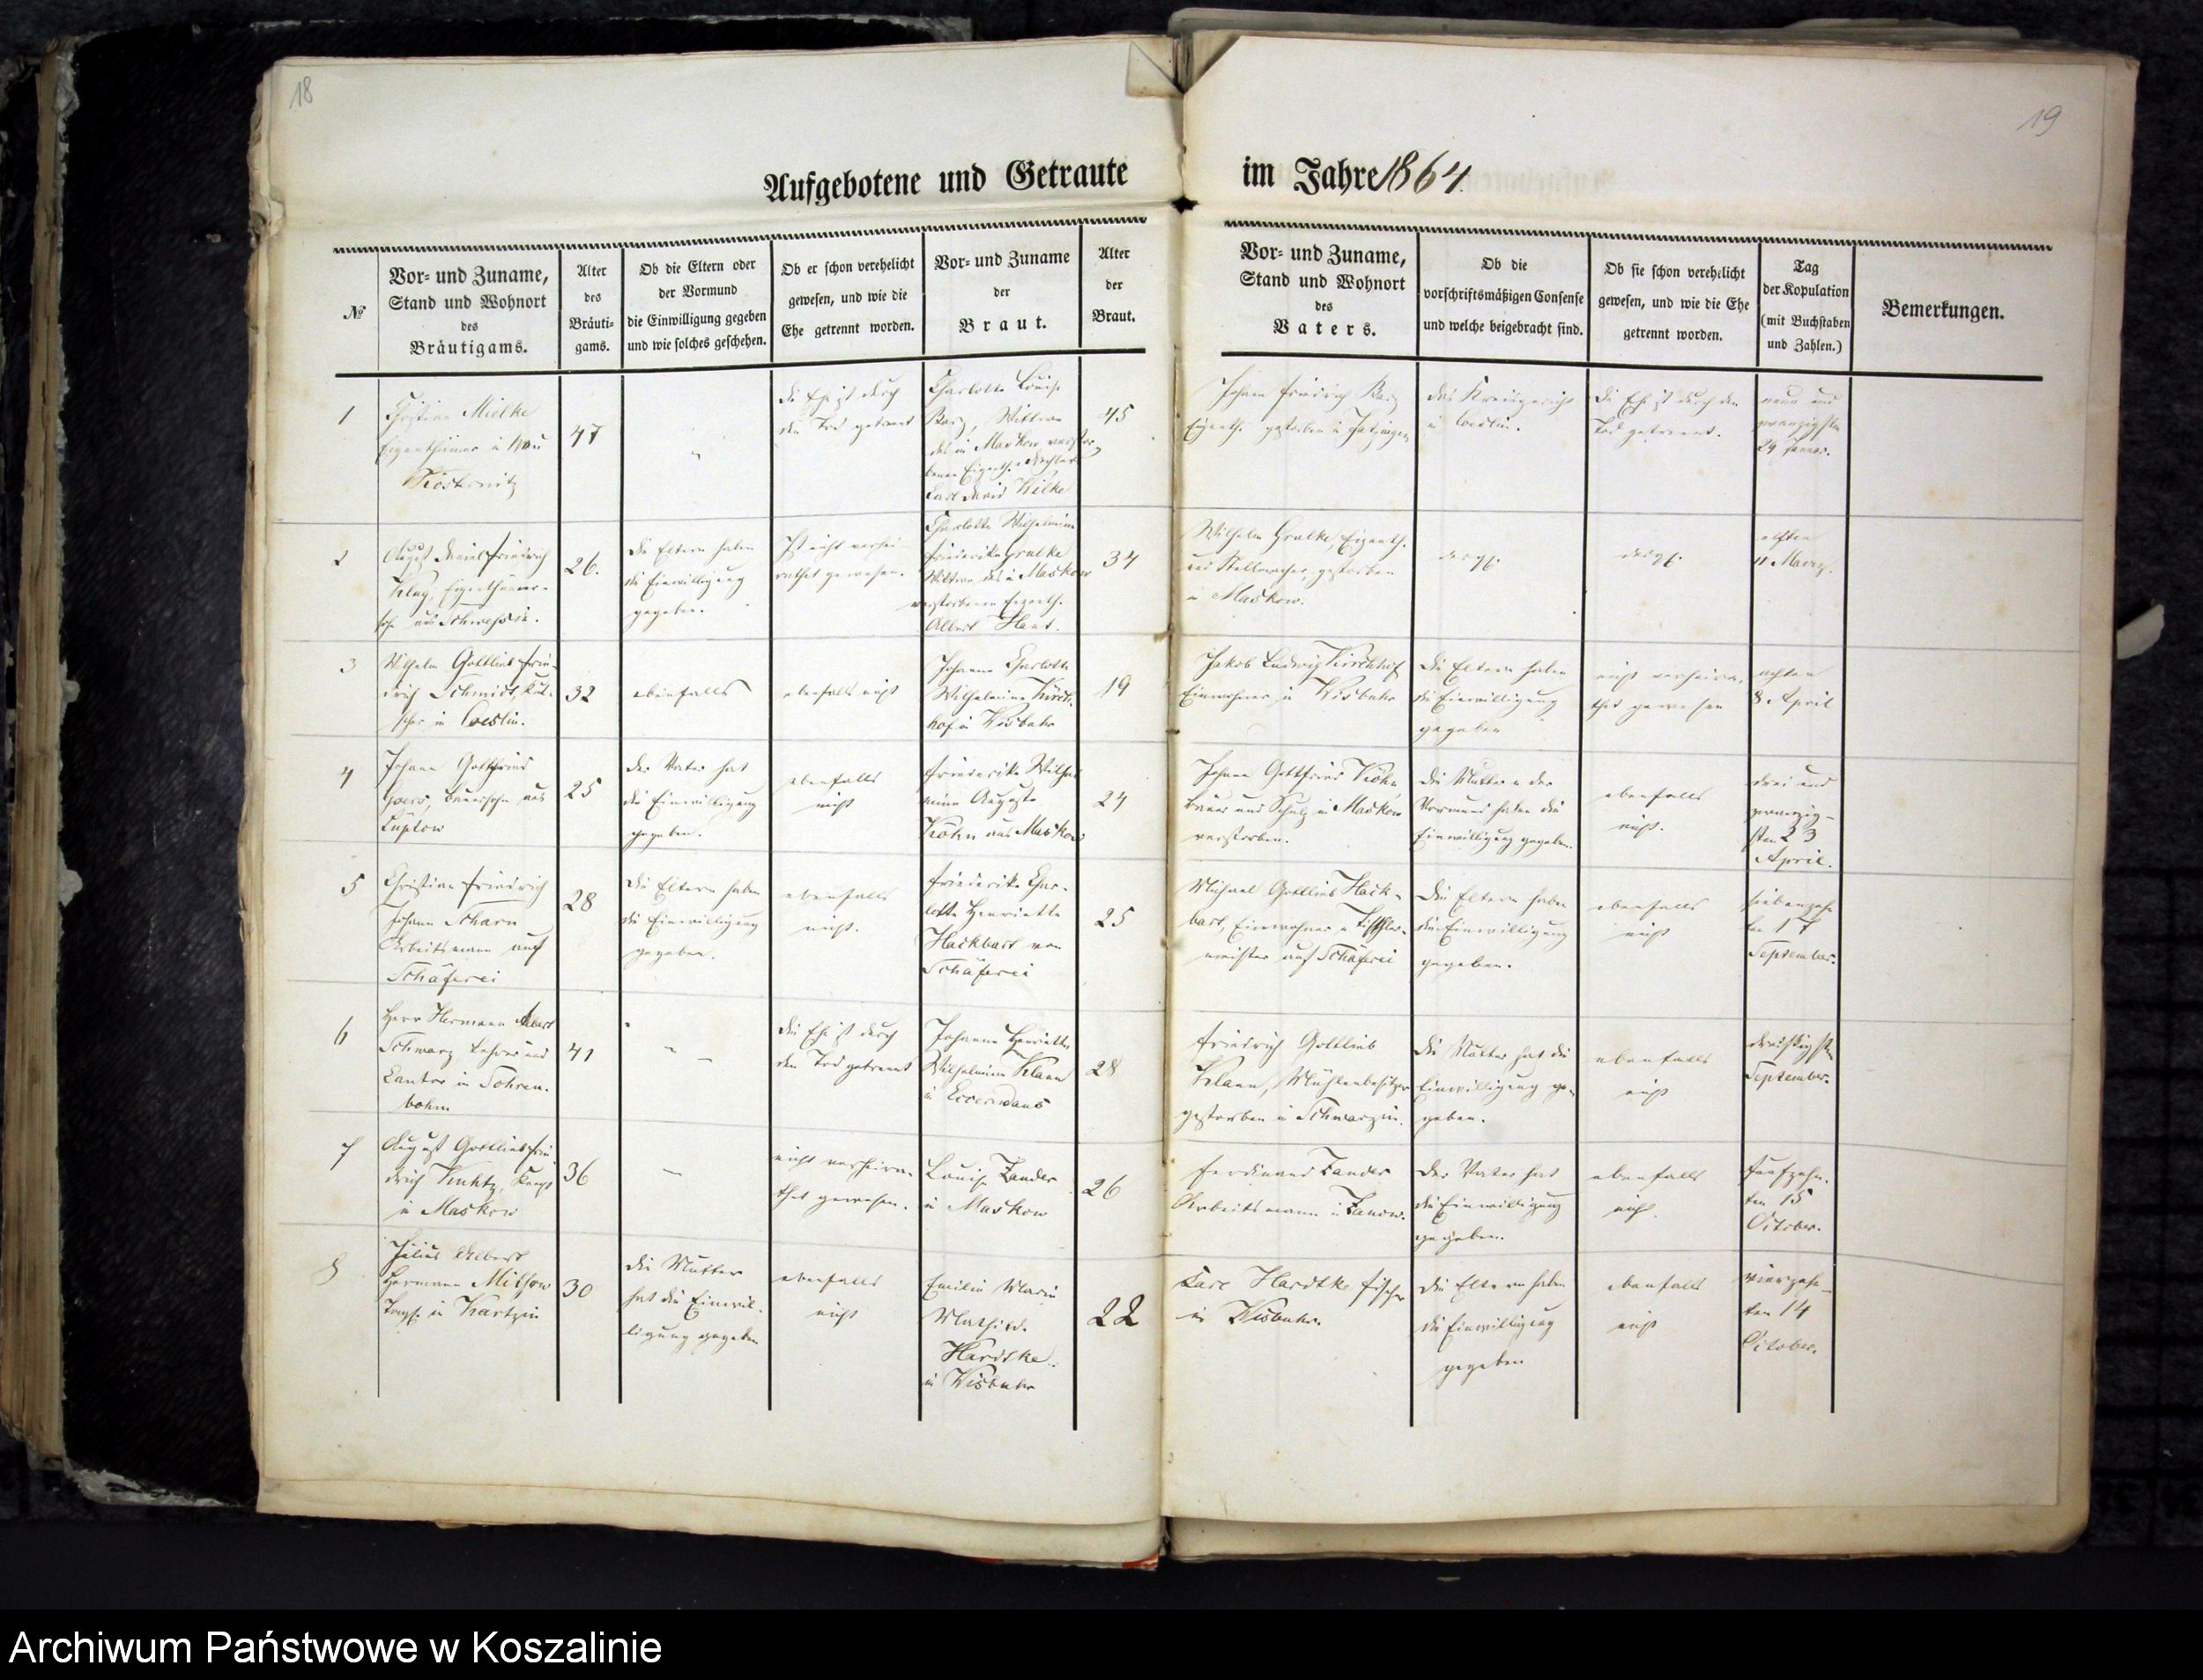 18
19
Aufgebotene und Getraute im Jahre 1864.
№
Vor- und Zuname,
Stand und Wohnort
des
Bräutigams.
Alter
des
Bräuti-
gams.
Ob die Eltern oder
der Vormund
die Einwilligung gegeben
und wie solches geschehen.
Ob er schon verehelicht
gewesen, und wie die
Ehe getrennt worden.
Vor- und Zuname
der
Braut.
Alter
der
Braut.
Vor- und Zuname,
Stand und Wohnort
des
Vaters.
Ob die
vorschriftsmäßigen Consense
und welche beigebracht sind.
Ob sie schon verehelicht
gewesen, und wie die Ehe
getrennt worden.
Tag
der Kopulation
(mit Buchstaben
und Zahlen.)
Bemerkungen.
1
Christian Mielke
Eigenthümer in Neu
47
die Ehe ist durch
den Tod getrennt
Charlotte Louise
Wittwe
des in Maskow verstor-
benen Eigenth.
Carl David Wilke
45
Johann Friedrich
Eigenth. gestorben in
das Kreisgericht
in Coeslin.
die Ehe ist durch den
Tod getrennt.
neun und
zwanzigsten
29 Januar.
2
August Daniel Friedrich
Klug, Eigenthümer-
sohn aus Schwessin.
26.
die Eltern haben
die Einwilligung
gegeben.
Ist nicht verhei-
rathet gewesen.
Charlotte Wilhelmine
Friederike Gralke
Wittwe des in Maskow
verstorbenen Eigenth.
Albert
34
Wilhelm Gralke, Eigenth.
und Stellmacher, gestorben
in Maskow.
desgl.
desgl.
elften
11 Maerz.
3
Wilhelm Gottlieb Frie-
drich Schmidt, Kut-
scher in Coeslin.
32
ebenfalls
ebenfalls nicht
Johanne Charlotte
Wilhelmine Kirch-
hof in Wisbuhr
19
Jakob Ludwig Kirchhof
Einwohner in Wisbuhr
die Eltern haben
die Einwilligung
gegeben
nicht verheira-
thet gewesen
achten
8 April
4
Johann Gottfried
Goers, Bauersohn aus
Lüptow
25
der Vater hat
die Einwilligung
gegeben.
ebenfalls
nicht
Friederike Wilhel-
mine Auguste
Köhn aus Maskow
24
Johann Gottfried Köhn
Bauer und Schulz in Maskow
verstorben.
die Mutter u der
Vormund haben die
Einwilligung gegeben.
ebenfalls
nicht.
drei und
zwanzig-
sten 23
April.
5
Christian Friedrich
Johann Scharn
Arbeitsmann auf
Schäferei
28
die Eltern haben
die Einwilligung
gegeben.
ebenfalls
nicht.
Friederike Char-
lotte Henriette
Hackbart von
Schäferei
25
Michael Gottlieb Hack-
bart, Einwohner u Tischler-
meister auf Schäferei
die Eltern haben
die Einwilligung
gegeben.
ebenfalls
nicht
siebenzehn
ten 17
September.
6
Herr Hermann Albert
Schwarz Lehrer und
Cantor in Sohren-
bohm
41
die Ehe ist durch
den Tod getrennt
Johanne Henriette
Wilhelmine Klann
28
Friedrich Gottlieb
Klann, Mühlenbesitzer
gestorben in Schwarzin.
die Mutter hat die
Einwilligung ge-
geben.
ebenfalls
nicht
dreißigsten
September.
7
August Gottlieb Frie-
drich
in Maskow
36
nicht verheira-
thet gewesen.
Louise Zander
in Maskow
26
Ferdinand Zander
Arbeitsmann in Zanow.
der Vater hat
die Einwilligung
gegeben.
ebenfalls
nicht.
funfzehn-
ten 15
October.
8
Julius Albert
Hermann
in Kartzin
30
die Mutter
hat die Einwil-
ligung gegeben
ebenfalls
nicht
Emilie Marie
Mathild.
Hardtke.
in Wisbuhr
22
Carl Hardtke Fischer
in Wisbuhr.
die Eltern haben
die Einwilligung
gegeben
ebenfalls
nicht
vierzehn-
ten 14
October.
Archiwum Państwowe w Koszalinie